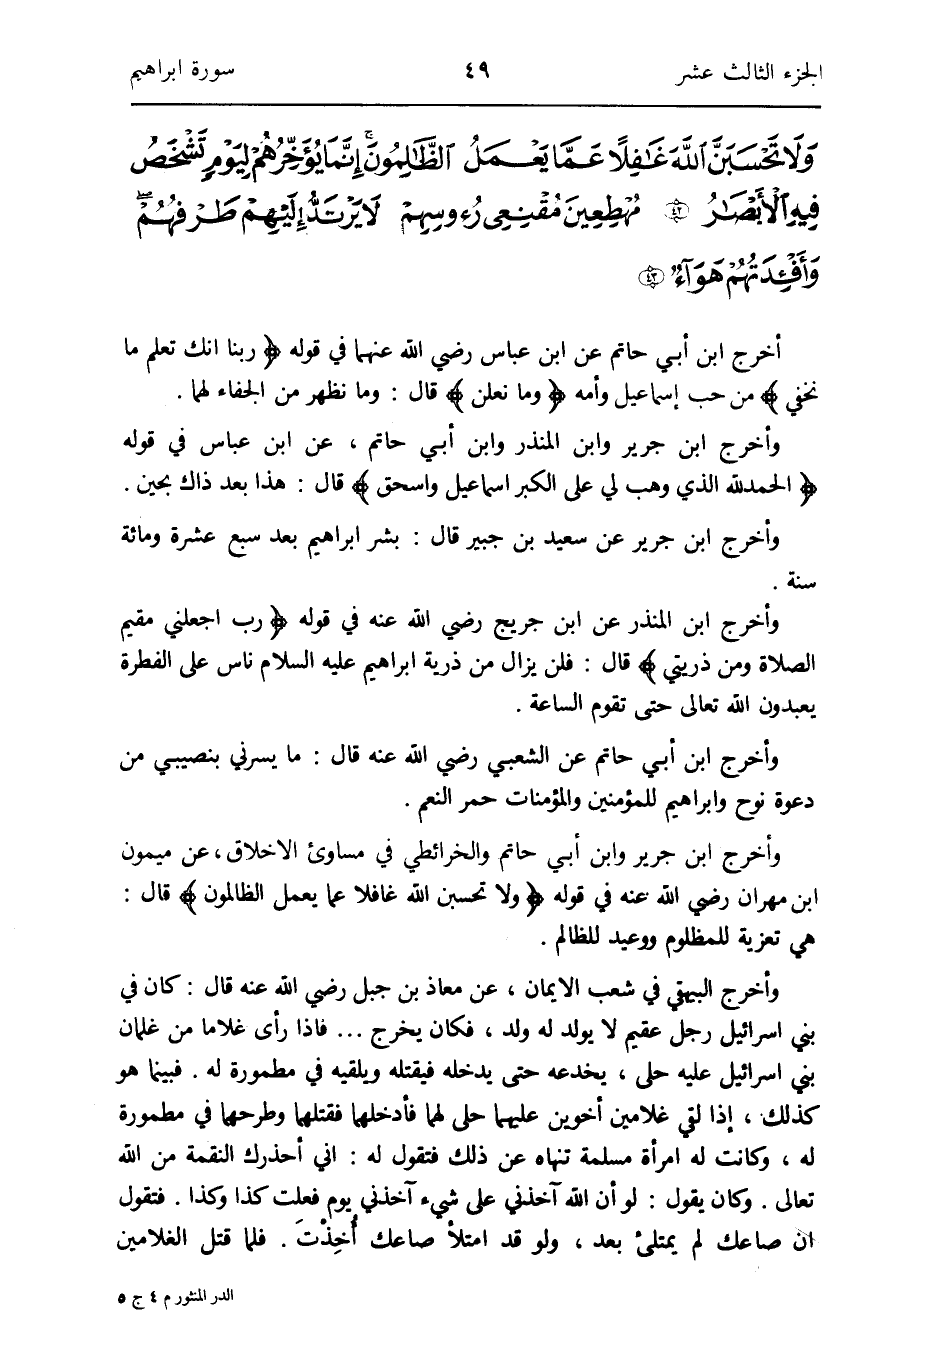 الجزء الثالث عشر ٤٩ سورة ابراهيم
وَلَا تَحْسَبَنَّ ٱللَّهَ غَٰفِلًا عَمَّا يَعْمَلُ ٱلظَّٰلِمُونَ ۚ إِنَّمَا يُؤَخِّرُهُمْ لِيَوْمٍ تَشْخَصُ
فِيهِ ٱلْأَبْصَٰرُ ٤٢ مُهْطِعِينَ مُقْنِعِى رُءُوسِهِمْ لَا يَرْتَدُّ إِلَيْهِمْ طَرْفُهُمْ ۖ
وَأَفْـِٔدَتُهُمْ هَوَآءٌ ٤٣
أخرج ابن أبي حاتم عن ابن عباس رضي الله عنهما في قوله ﴿ ربنا انك تعلم ما
نخفي ﴾ من حب إسماعيل وأمه ﴿ وما نعلن ﴾ قال : وما نظهر من الجفاء لها .
وأخرج ابن جرير وابن المنذر وابن أبي حاتم ، عن ابن عباس في قوله
﴿ الحمدلله الذي وهب لي على الكبر اسماعيل واسحق ﴾ قال : هذا بعد ذاك بحين .
وأخرج ابن جرير عن سعيد بن جبير قال : بشر ابراهيم بعد سبع عشرة ومائة
سنة .
وأخرج ابن المنذر عن ابن جريج رضي الله عنه في قوله ﴿ رب اجعلني مقيم
الصلاة ومن ذريتي ﴾ قال : فلن يزال من ذرية ابراهيم عليه السلام ناس على الفطرة
يعبدون الله تعالى حتى تقوم الساعة .
وأخرج ابن أبي حاتم عن الشعبي رضي الله عنه قال : ما يسرني بنصيبي من
دعوة نوح وابراهيم للمؤمنين والمؤمنات حمر النعم .
وأخرج ابن جرير وابن أبي حاتم والخرائطي في مساوئ الاخلاق ، عن ميمون
ابن مهران رضي الله عنه في قوله ﴿ ولا تحسبن الله غافلا عما يعمل الظالمون ﴾ قال :
هي تعزية للمظلوم ووعيد للظالم .
وأخرج البيهقي في شعب الايمان ، عن معاذ بن جبل رضي الله عنه قال : كان في
بني اسرائيل رجل عقيم لا يولد له ولد ، فكان يخرج ... فاذا رأى غلاما من غلمان
بني اسرائيل عليه حلى ، يخدعه حتى يدخله فيقتله ويلقيه في مطمورة له . فبينما هو
كذلك ، إذا لقي غلامين أخوين عليهما حلى لهما فأدخلهما فقتلهما وطرحهما في مطمورة
له ، وكانت له امرأة مسلمة تنهاه عن ذلك فتقول له : اني أحذرك النقمة من الله
تعالى . وكان يقول : لو أن الله آخذني على شيء آخذني يوم فعلت كذا وكذا . فتقول
ان صاعك لم يمتلئ بعد ، ولو قد امتلأ صاعك أُخِذْتَ . فلما قتل الغلامين
الدر المنثور م ٤ ج ٥